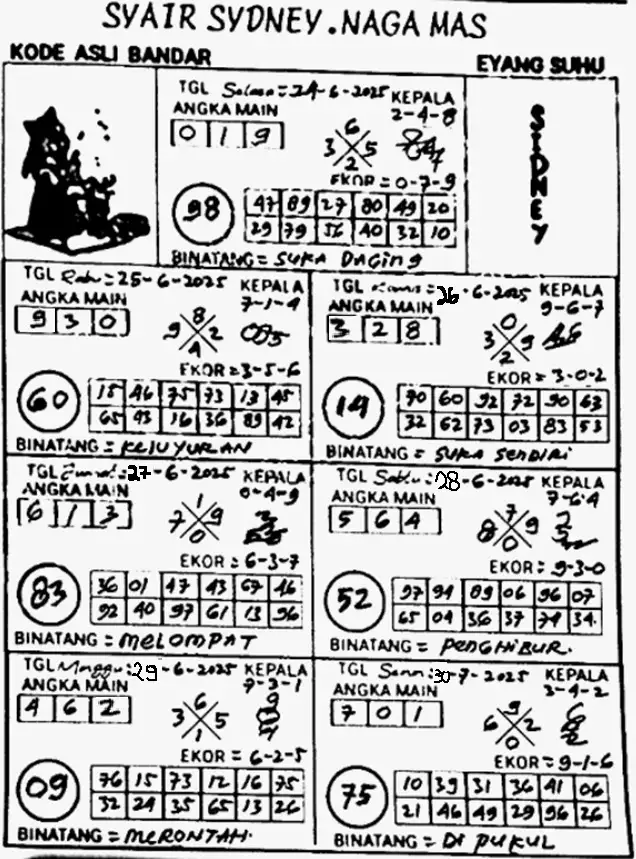 SYAIR SYDNEY.NAGA MAS
KODE ASLI BANDAR
EYANG SUHU
TGL Selasa = 24-6-2025
KEPALA
ANGKA MAIN
2-4-8
0 1 9
6
3 5
2
EKOR = 0-7-9
98
47 89 27 80 49 20
29 79 56 40 32 10
BINATANG = SUKA DAGING
SIDNEY
TGL Rabu = 25-6-2025
KEPALA
ANGKA MAIN
7-1-4
9 3 0
8
9 2
4
EKOR = 3-5-6
60
15 46 75 73 13 45
65 93 16 36 89 42
BINATANG = KELUYURAN
TGL Kamis = 26-6-2025
KEPALA
ANGKA MAIN
9-6-7
3 2 8
0
3 9
2
EKOR = 3-0-2
14
70 60 92 72 90 63
32 62 73 03 83 53
BINATANG = SUKA SENDIRI
TGL Jumat: 27-6-2025
KEPALA
ANGKA MAIN
0-4-9
6 1 3
1
7 9
0
EKOR : 6-3-7
83
36 01 47 43 67 46
92 40 97 61 13 96
BINATANG = MELOMPAT
TGL Sabtu: 28-6-2025
KEPALA
ANGKA MAIN
7-6-4
5 6 4
7
8 9
0
EKOR: 9-3-0
52
97 94 89 06 96 07
65 04 36 37 74 34
BINATANG = PENGHIBUR.
TGL Minggu: 29-6-2025
KEPALA
ANGKA MAIN
7-3-1
4 6 2
6
3 5
1
EKOR = 6-2-5
09
76 15 73 12 16 75
32 24 35 65 13 26
BINATANG = MERONTAH.
TGL Senin: 30-7-2025
KEPALA
ANGKA MAIN
3-4-2
7 0 1
9
6 2
0
EKOR = 9-1-6
75
10 39 31 36 41 06
21 46 49 29 96 26
BINATANG = DI PUKUL